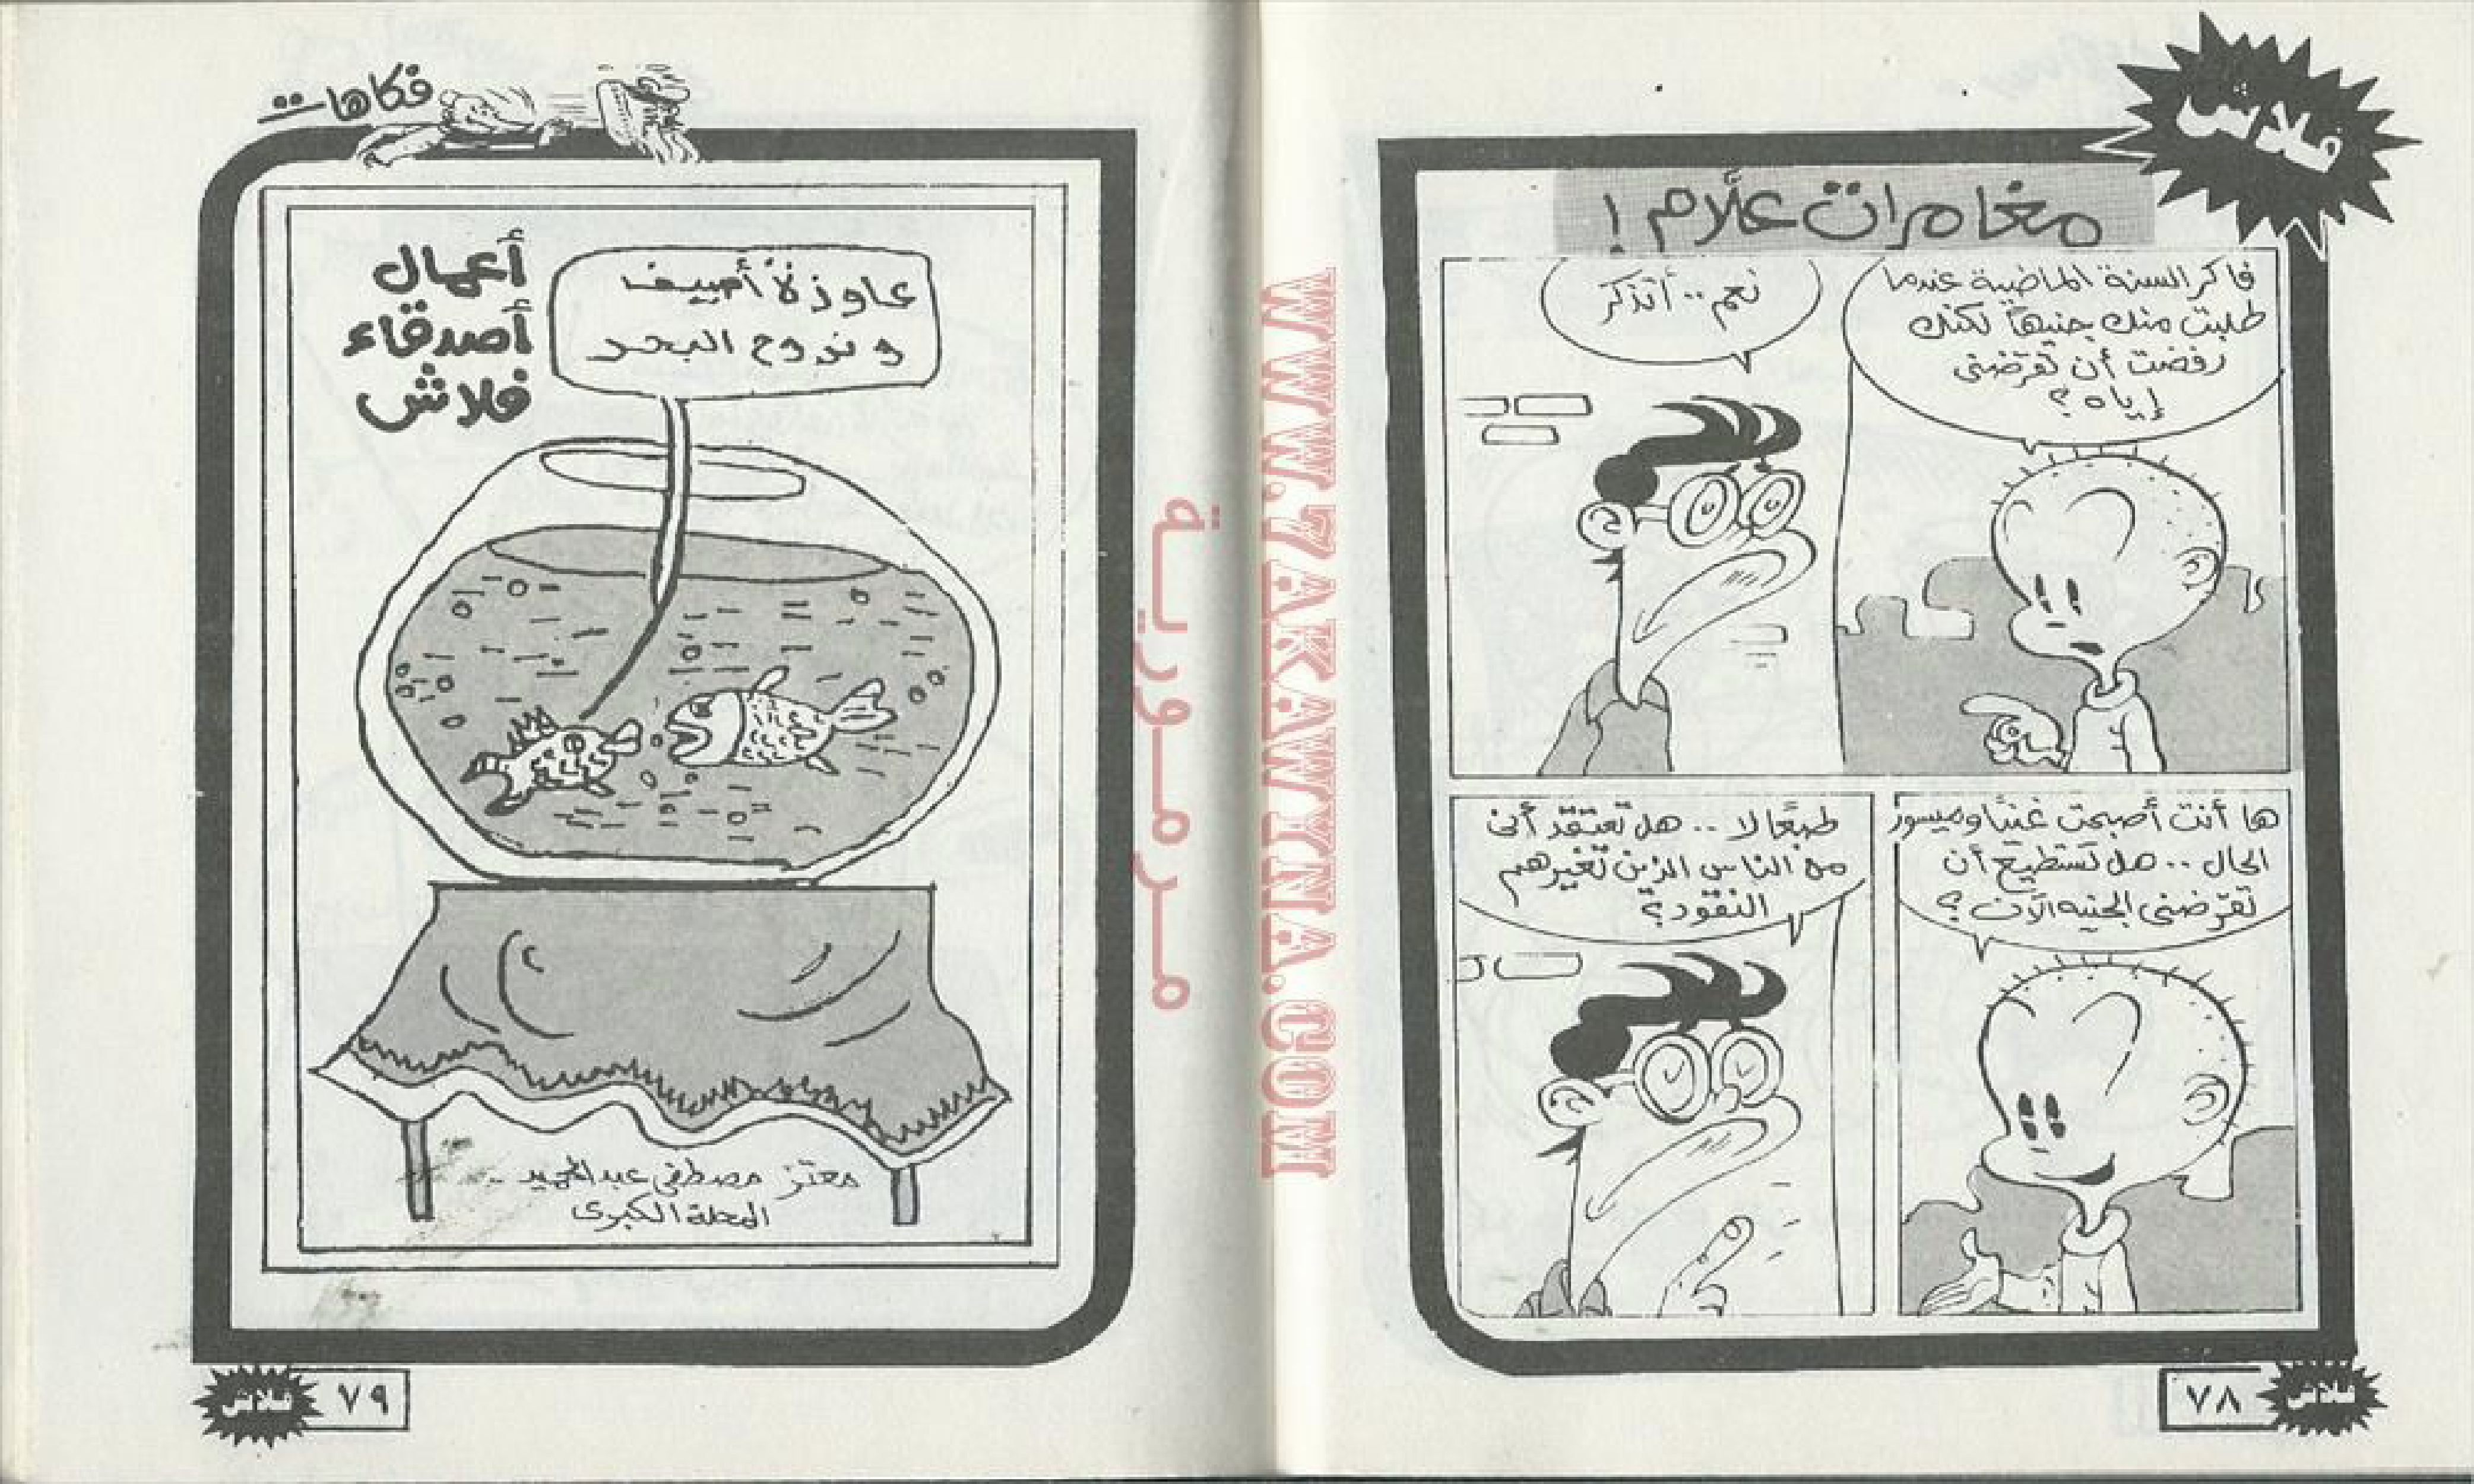 فلاش
مغامرات علام !
فاكر السنة الماضية عندما
طلبت منك جنيهاً لكنك
رفضت أن تقرضنى
إياه ؟
نعم .. أتذكر
ها أنت أصبحت غنياً وميسور
الحال .. هل تستطيع أن
تقرضنى الجنيه الآن ؟
طبعًا لا .. هل تعتقد أنى
من الناس الذين تغيرهم
النقود ؟
٧٨
فلاش
WWW.7AKAWINA.COM
مرمورية
فكاهات
أعمال
أصدقاء
فلاش
ونروح البحر
معتز مصطفى عبد الحميد -
المحلة الكبرى
فلاش
٧٩